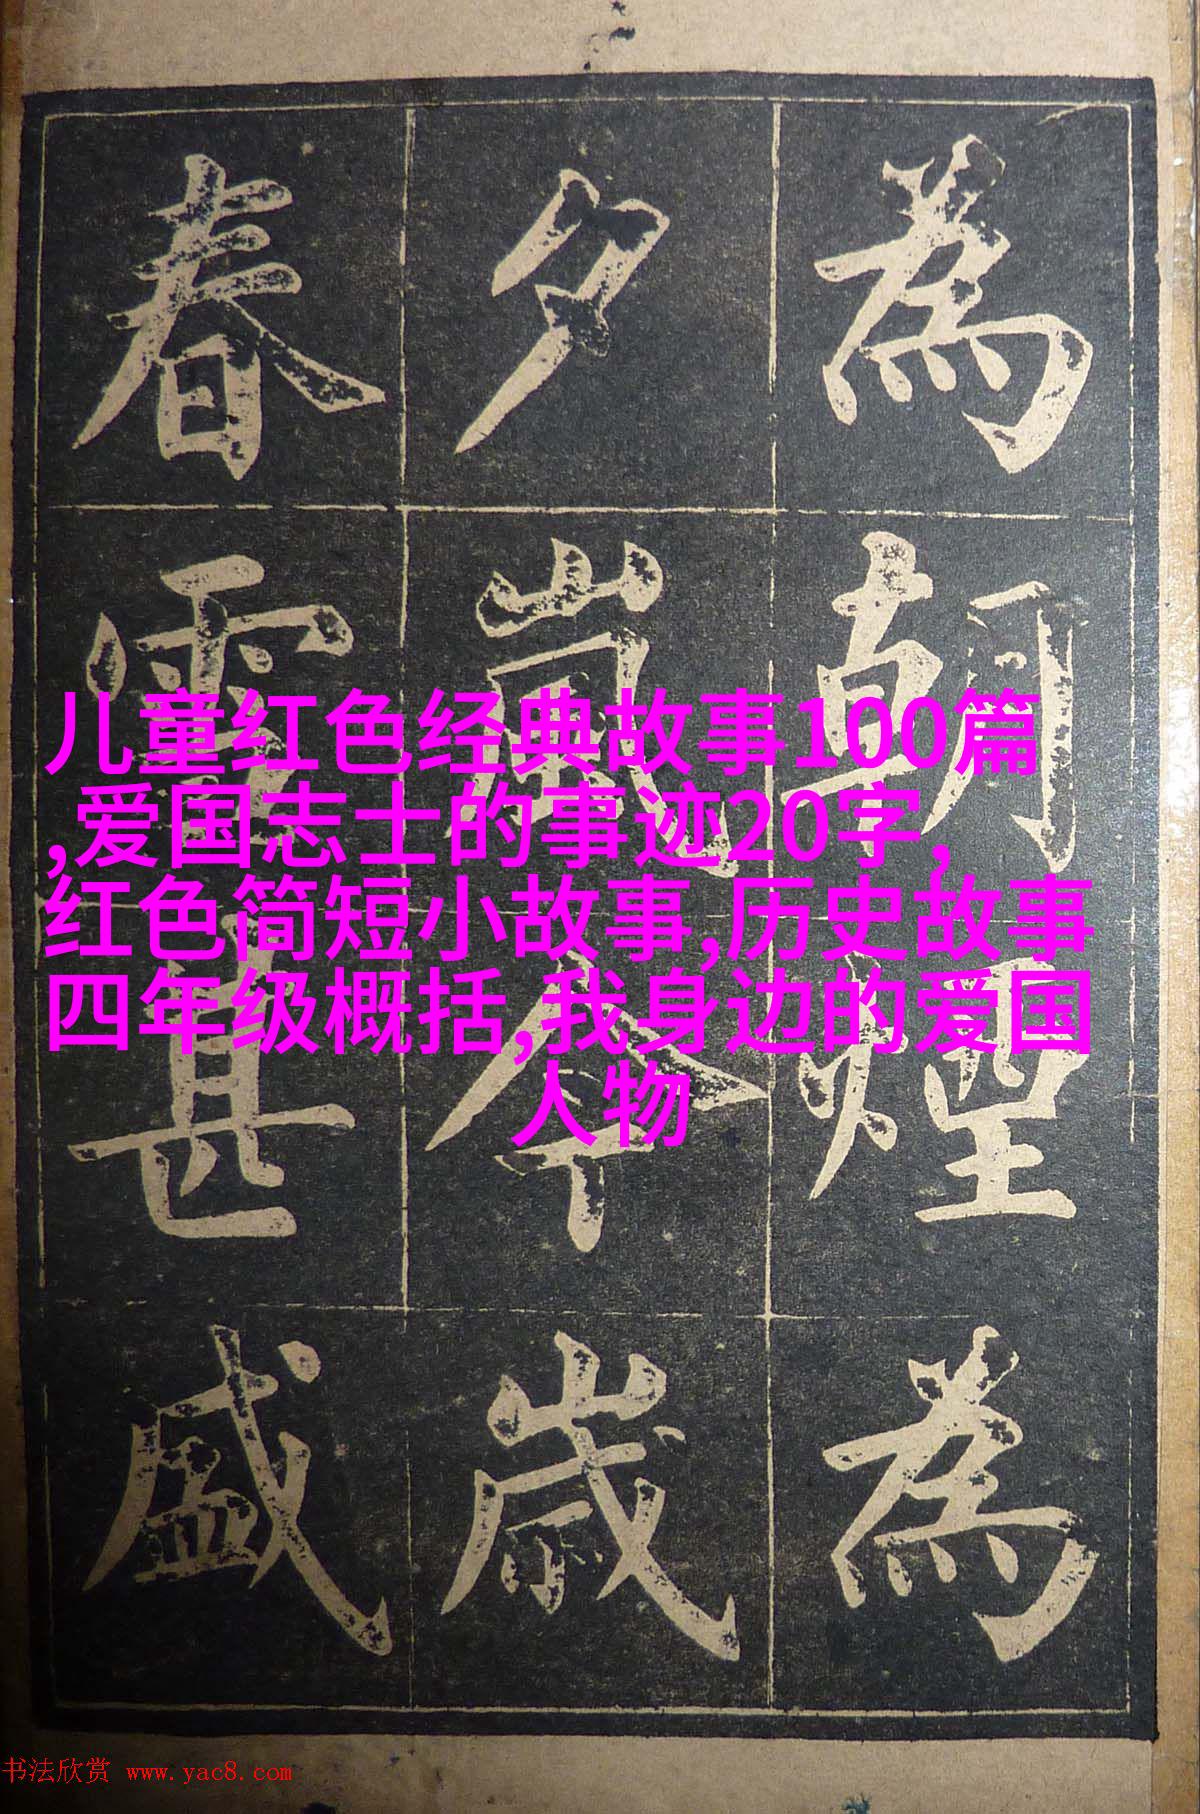 為朝煙為
夕嵐今歳
春雪甚盛
儿童红色经典故事100篇
,爱国志士的事迹20字,
红色简短小故事,历史故事
四年级概括,我身边的爱国
人物
书法欣赏 www.yac8.com